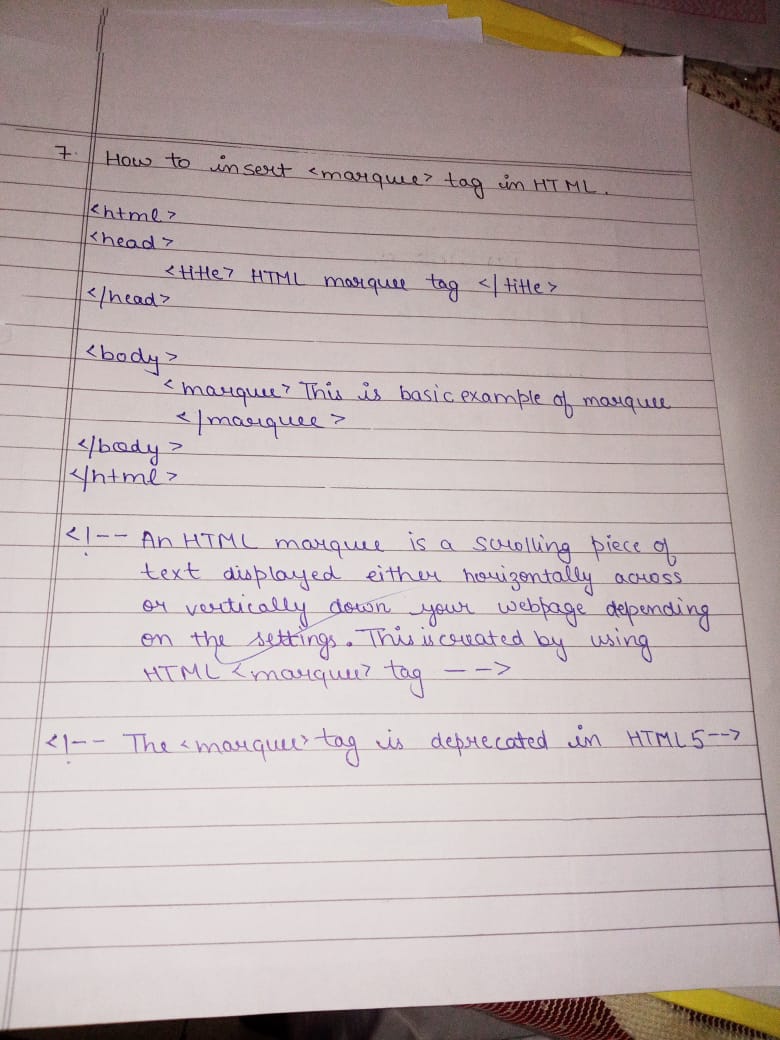 7. How to insert <marquee> tag in HTML.
<html>
<head>
<title> HTML marquee tag </title>
</head>
<body>
<marquee> This is basic example of marquee
</marquee>
</body>
</html>
<!-- An HTML marquee is a scrolling piece of
text displayed either horizontally across
or vertically down your webpage depending
on the settings. This is created by using
HTML <marquee> tag -->
<!-- The <marquee> tag is deprecated in HTML5-->